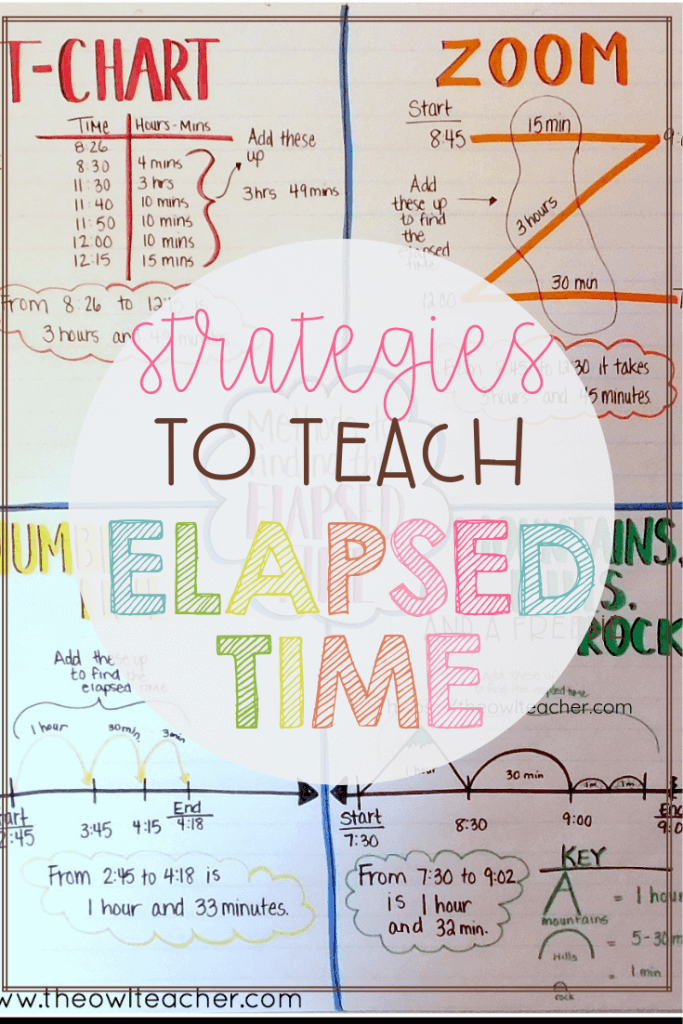 T-CHART
TIME Hours-Mins
8:26
8:30 4 mins
11:30 3 hrs
11:40 10 mins
11:50 10 mins
12:00 10 mins
12:15 15 mins
Add these
up
3hrs 49mins
From 8:26 to 12:15 is
3 hours and 49 minutes
ZOOM
Start
8:45
15 min
Add
these up
to find
the
elapsed
time
3 hours
30 min
12:00
From 8:45 to 12:30 it takes
3 hours and 45 minutes.
strategies
TO TEACH
ELAPSED
TIME
Methods to
finding the
ELAPSED
TIME
Add these up
to find the
elapsed time
1 hour
30min
3min
3:45
4:15
End
4:18
From 2:45 to 4:18 is
1 hour and 33 minutes.
MOUNTAINS.
HILLS.
ROCK
AND A FREEBIE
theowlteacher.com
1 hour
30 min
Start
7:30
8:30
9:00
From 7:30 to 9:02
is 1 hour
and 32 min.
KEY
mountains = 1 hour
Hills = 5-30
rock = 1 min
www.theowlteacher.com